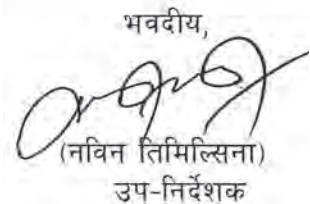 भवदीय,
(नविन तिमिल्सिना)
उप-निर्देशक